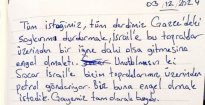 03.12.2024
Tüm isteğimiz, tüm derdimiz Gazze'deki
soykırımı durdurmak, İsrail'e bu topraklar
üzerinden bir iğne dahi olsa gitmesine
engel olmaktı. Unutulmasın ki
Socar İsrail'e bizim topraklarımız üzerinden
petrol gönderiyor. Biz buna engel olmak
istedik. Gayemiz tam olarak buydu.